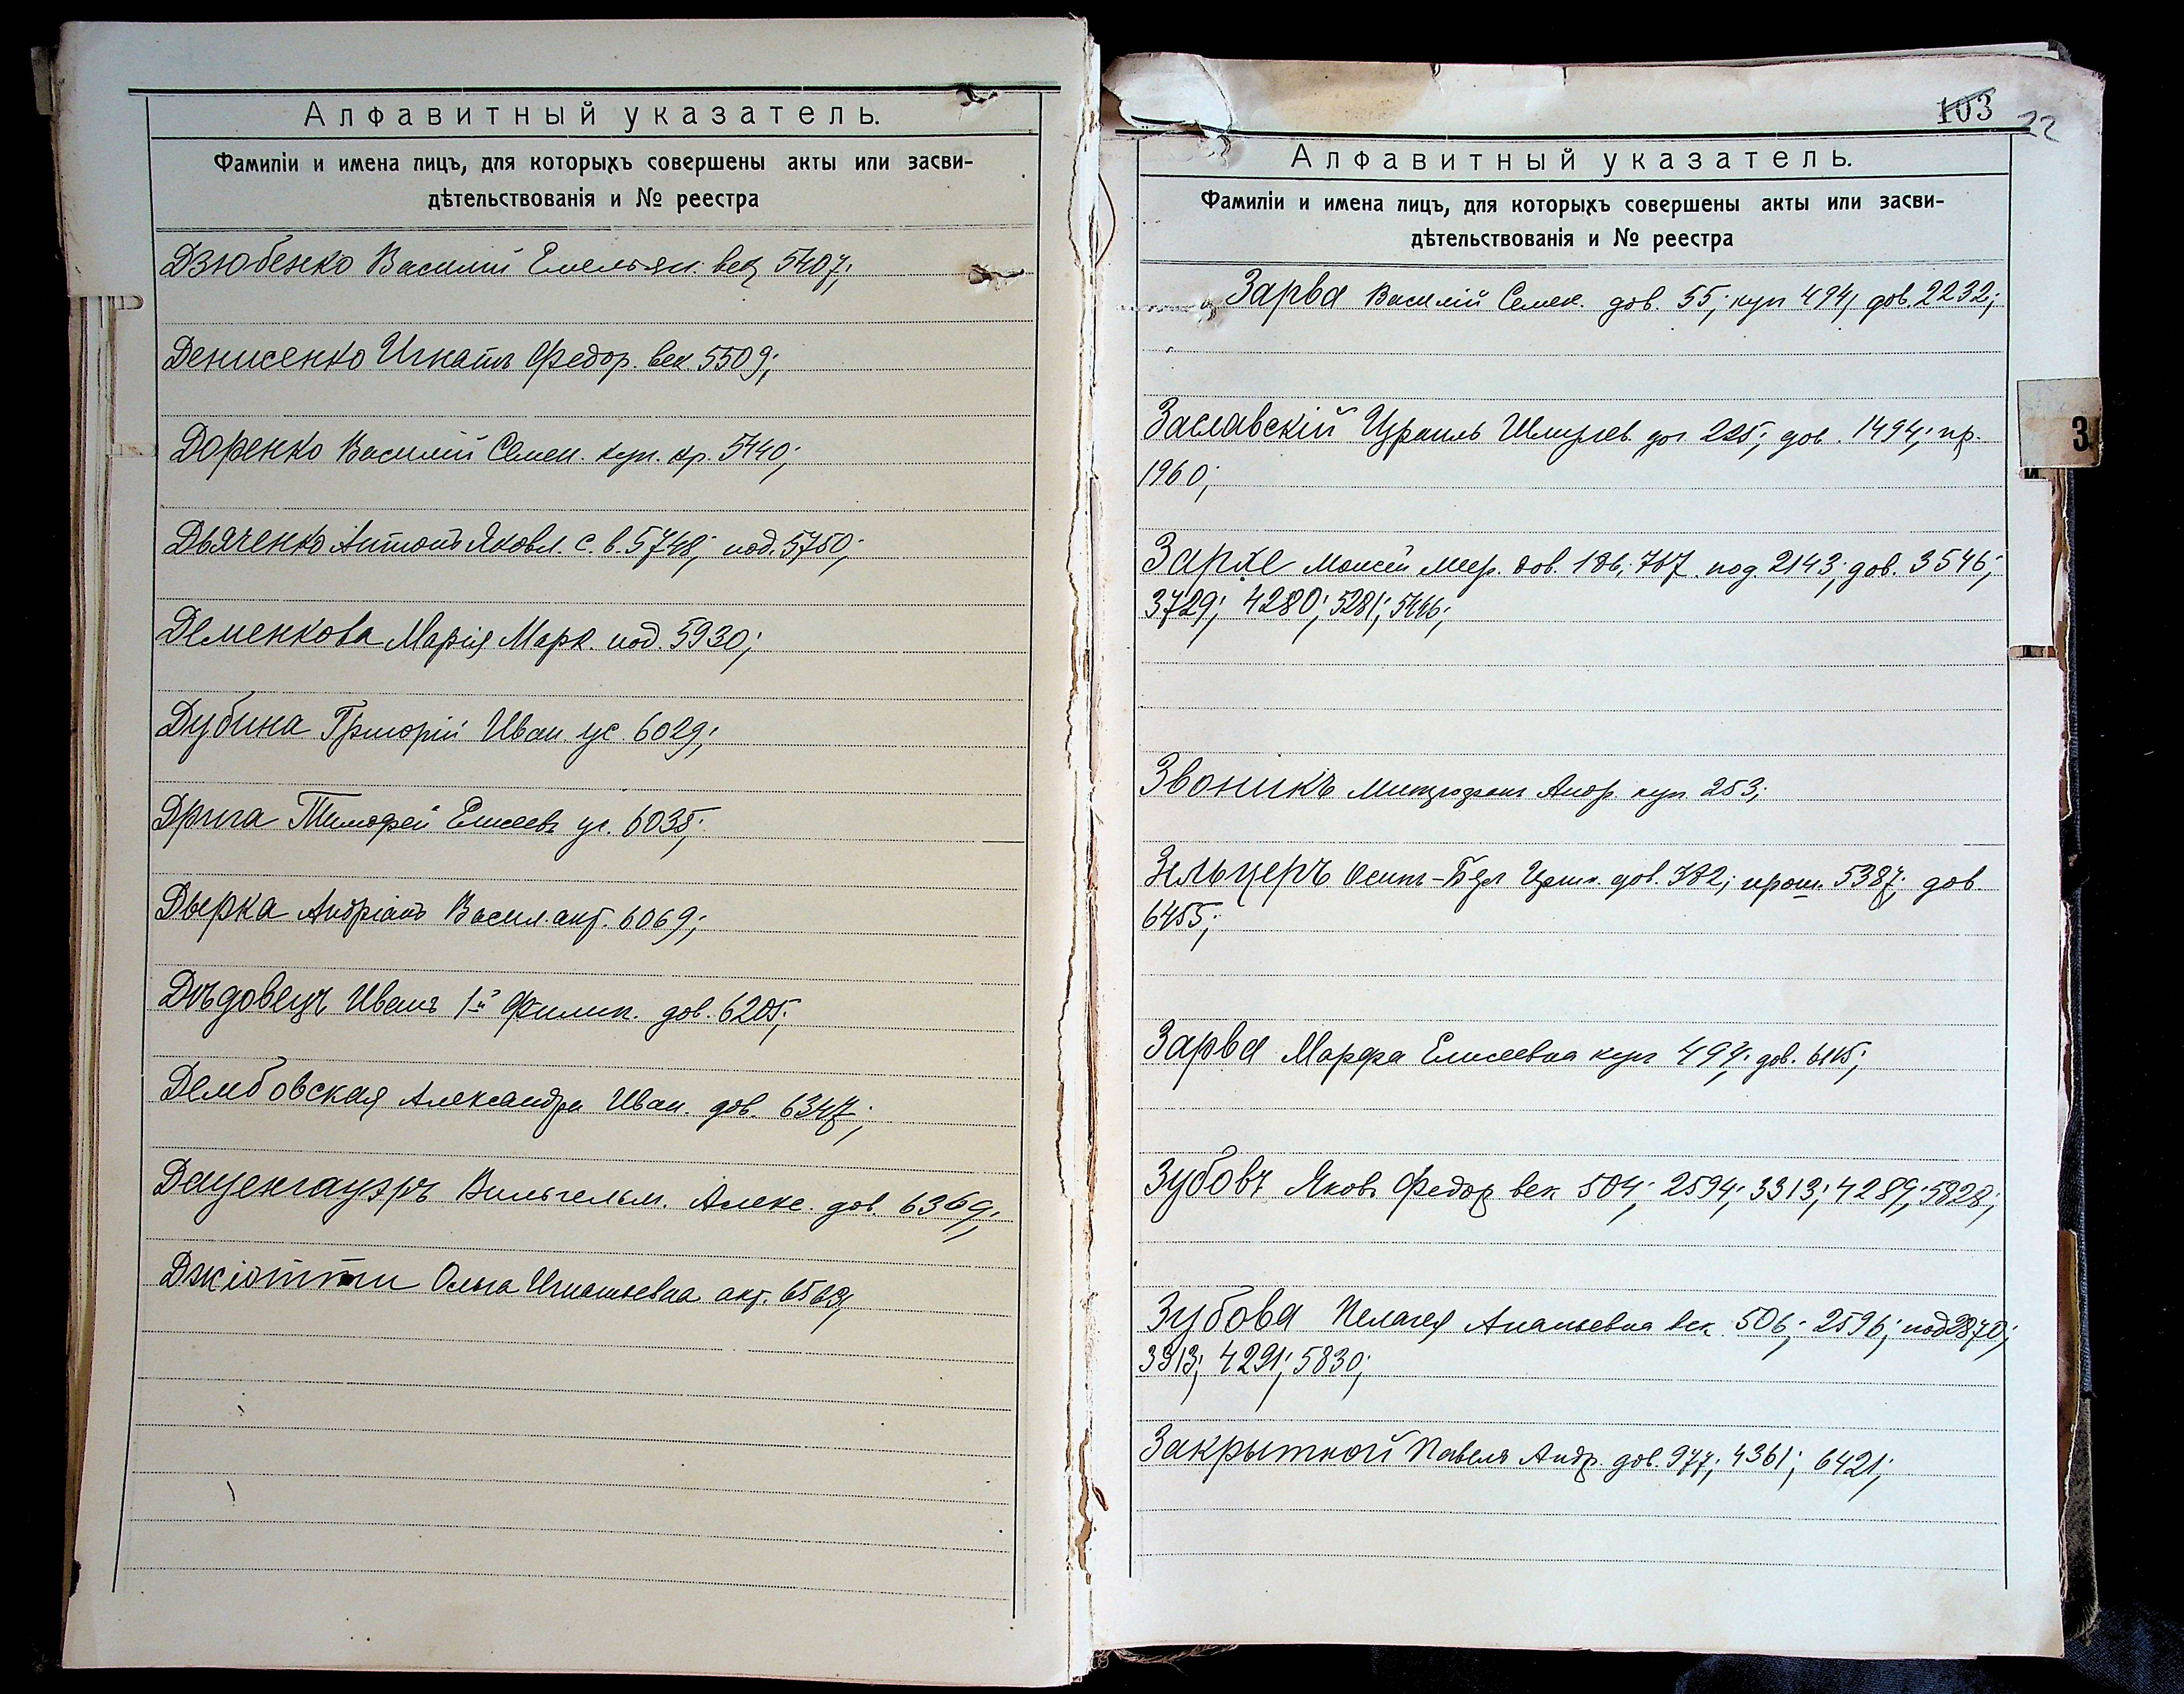 Алфавитный указатель.
Фамиліи и имена лицъ, для которыхъ совершены акты или засви-
дѣтельствованія и № реестра
Дзюбенко Василий Емельян. век 5407;
Денисенко Игнатъ Федор. век. 5509;
Доренко Василий Семен. куп. кр. 5440;
Дьяченко Антонъ Яковл. с. в. 5748; под. 5750;
Деменкова Марія Марк. под. 5930;
Дубина Григорій Иван. ус. 6029;
Дрига Тимофей Елисеев. ус. 6035;
Дырка Андріанъ Васил. акт. 6069;
Дѣдовецъ Иванъ 1й Филип. дов. 6205;
Дембовская Александра Иван. дов. 6347;
Даценгауэръ Вильгельм. Алекс. дов. 6369;
Джіотти Ольга Игнатьевна акт.
103 22
Алфавитный указатель.
Фамиліи и имена лицъ, для которыхъ совершены акты или засви-
дѣтельствованія и № реестра
Зарва Василій Семен. дов. 55; куп 494; дов. 2232;
З
Заславскій Израиль дог 225; дов. 1494; пр.
1960;
Зархе Моисей Меер. дов. 787. под. 2143; дов. 3546;
3729; 4280; 5281;
Звоникъ Митрофанъ Андр. куп 253;
Зельцеръ Осипъ- дов. 382; прот. 5387; дов.
6455;
Зарва Марфа Елисеевна куп 494; дов.
Зубовъ Яковъ Федор век 504; 2594; 3313; 4289; 5828;
Зубова Пелагея Ананьевна век. 506; 2596; под 2870;
3313; 4291; 5830;
Закрытной Павелъ Андр. дов. 977; 4361; 6421;